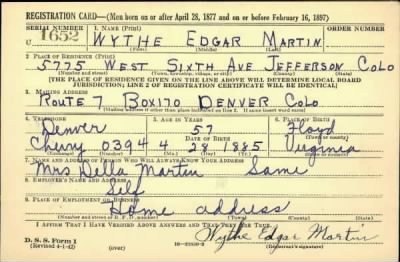 REGISTRATION CARD—(Men born on or after April 28, 1877 and on or before February 16, 1897)
SERIAL NUMBER 1. NAME (Print) ORDER NUMBER
U 1652 WYTHE EDGAR MARTIN
(First) (Middle) (Last)
2. PLACE OF RESIDENCE (Print)
5775 WEST SIXTH AVE JEFFERSON COLO
(Number and street) (Town, township, village, or city) (County) (State)
[THE PLACE OF RESIDENCE GIVEN ON THE LINE ABOVE WILL DETERMINE LOCAL BOARD
JURISDICTION; LINE 2 OF REGISTRATION CERTIFICATE WILL BE IDENTICAL]
3. MAILING ADDRESS
ROUTE 7 BOX170 DENVER COLO
[Mailing address if other than place indicated on line 2. If same insert word same]
4. TELEPHONE 5. AGE IN YEARS 6. PLACE OF BIRTH
Denver 57 Floyd
DATE OF BIRTH (Town or county)
Cherry 0394 4 28 1885 Virginia
(Exchange) (Number) (Mo.) (Day) (Yr.) (State or country)
7. NAME AND ADDRESS OF PERSON WHO WILL ALWAYS KNOW YOUR ADDRESS
Mrs Della Martin Same
8. EMPLOYER'S NAME AND ADDRESS
Self
9. PLACE OF EMPLOYMENT OR BUSINESS
Home address
(Number and street or R. F. D. number) (Town) (County) (State)
I AFFIRM THAT I HAVE VERIFIED ABOVE ANSWERS AND THAT THEY ARE TRUE.
D. S. S. Form 1
(Revised 4-1-42) (over) Wythe Edgar Martin
(Registrant's signature)